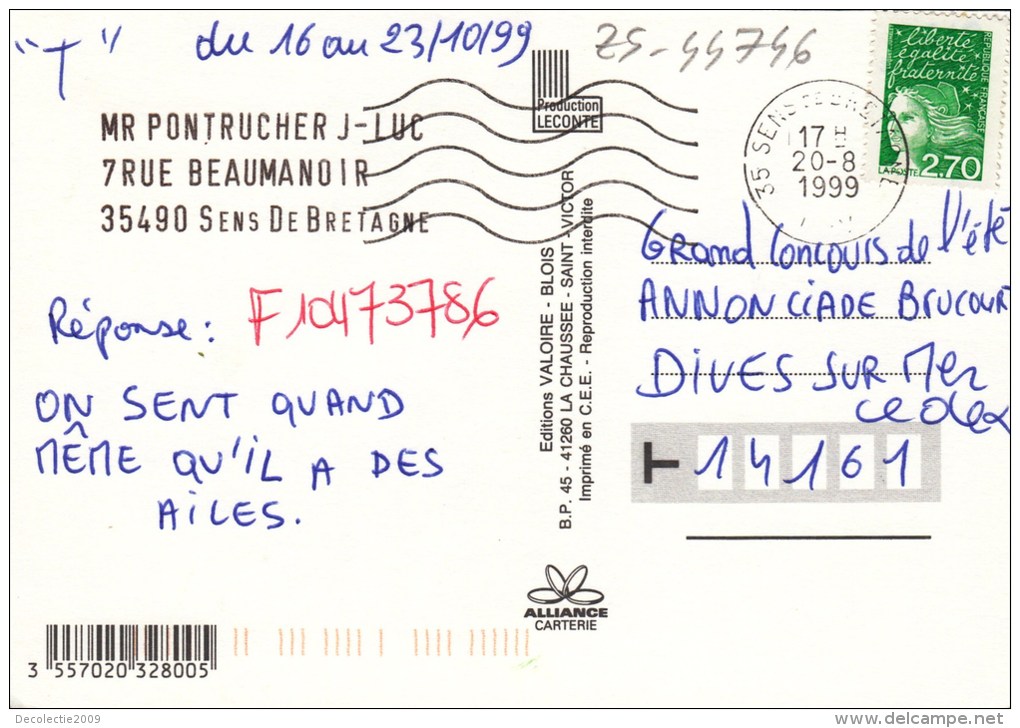 "T" du 16 au 23/10/99
ZS-44746
Production
LECONTE
liberté
égalité
fraternité
REPUBLIQUE FRANÇAISE
LA POSTE 2,70
35 SENS DE BRETAGNE
17 H
20-8
1999
MR PONTRUCHER J-LUC
7 RUE BEAUMANOIR
35490 SENS DE BRETAGNE
Réponse: F10473786
ON SENT QUAND
MÊME QU'IL A DES
AILES.
Editions VALOIRE - BLOIS
B.P. 45 - 41260 LA CHAUSSEE - SAINT - VICTOR
Imprimé en C.E.E. - Reproduction interdite
GRAND CONCOURS de l'été
ANNONCIADE BRUCOURT
DIVES SUR MER
cedex
T 14161
ALLIANCE
CARTERIE
3 557020 328005
Decolectie2009
www.delcampe.net